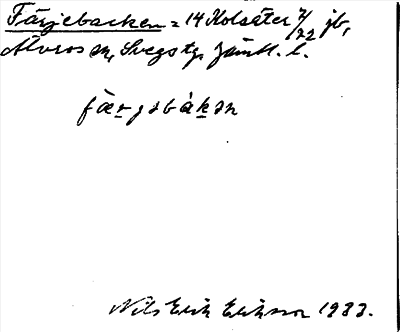 Färjebacken = 14 Kolsäter 7/22 jb,
Älvros sn, Svegs tg. Jämtl. l.
færjəbákən
Nils Erik Eriksson 1983.